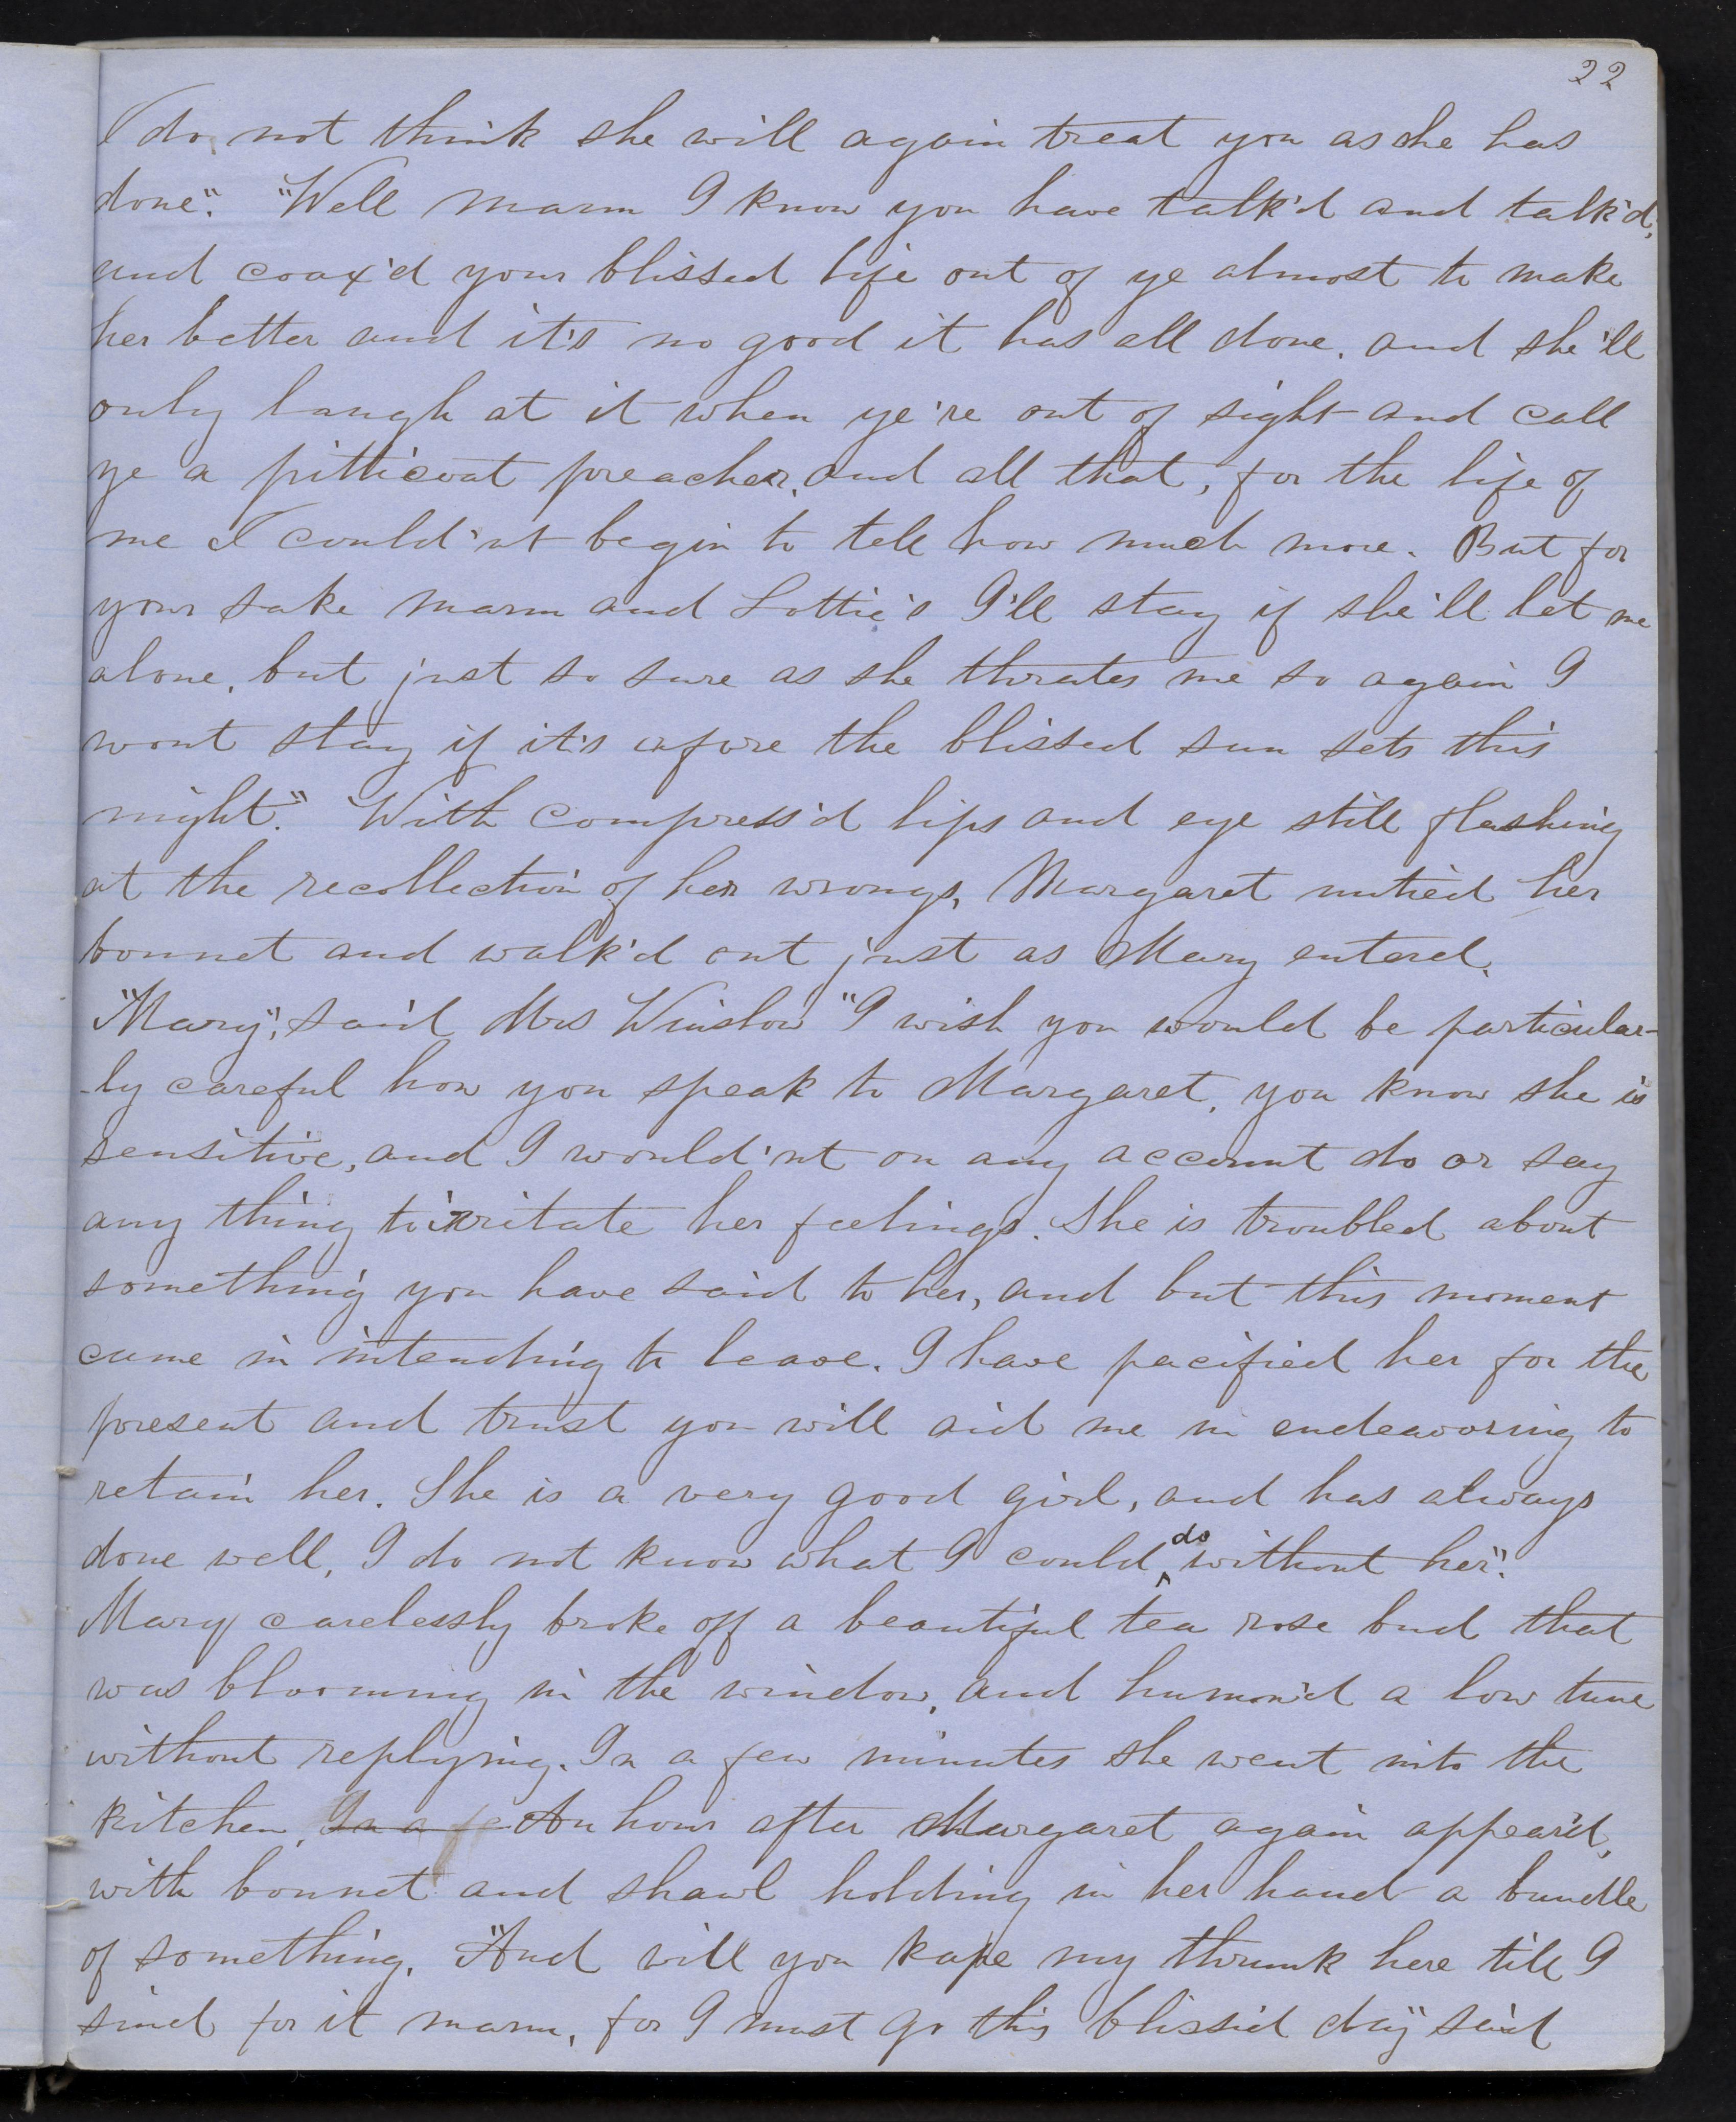 22
I do not think she will again treat you as she has
done". "Well marm I know you have talk'd and talk'd,
and coax'd your blissed life out of ye almost to make
her better and it's no good it has all done, and she'll
only laugh at it when ye're out of sight and call
ye a pitticoat preacher, and all that, for the life of
me I could'nt begin to tell how much more. But for
your sake marm and Lottie's I'll stay if she'll let me
alone, but just so sure as she thrates me so again I
wont stay if it's afore the blissed sun sets this
night." With compress'd lips and eye still flashing
at the recollection of her wrongs, Margaret untied her
bonnet and walk'd out just as Mary entered.
"Mary", said Mrs Winslow "I wish you would be particular-
-ly careful how you speak to Margaret, you know she is
sensitive, and I would'nt on any account do or say
any thing to irritate her feelings. She is troubled about
something you have said to her, and but this moment
came in intending to leave. I have pacified her for the
present and trust you will aid me in endeavoring to
retain her. She is a very good girl, and has always
done well, I do not know what I could do without her".
Mary carelessly broke off a beautiful tea rose bud that
was blooming in the window, and humm'd a low tune
without replying. In a few minutes she went into the
kitchen. In a fe An hour after Margaret again appear'd,
with bonnet and shawl holding in her hand a bundle
of something. "And will you kape my thrunk here till I
sind for it marm, for I must go this blissid day" said